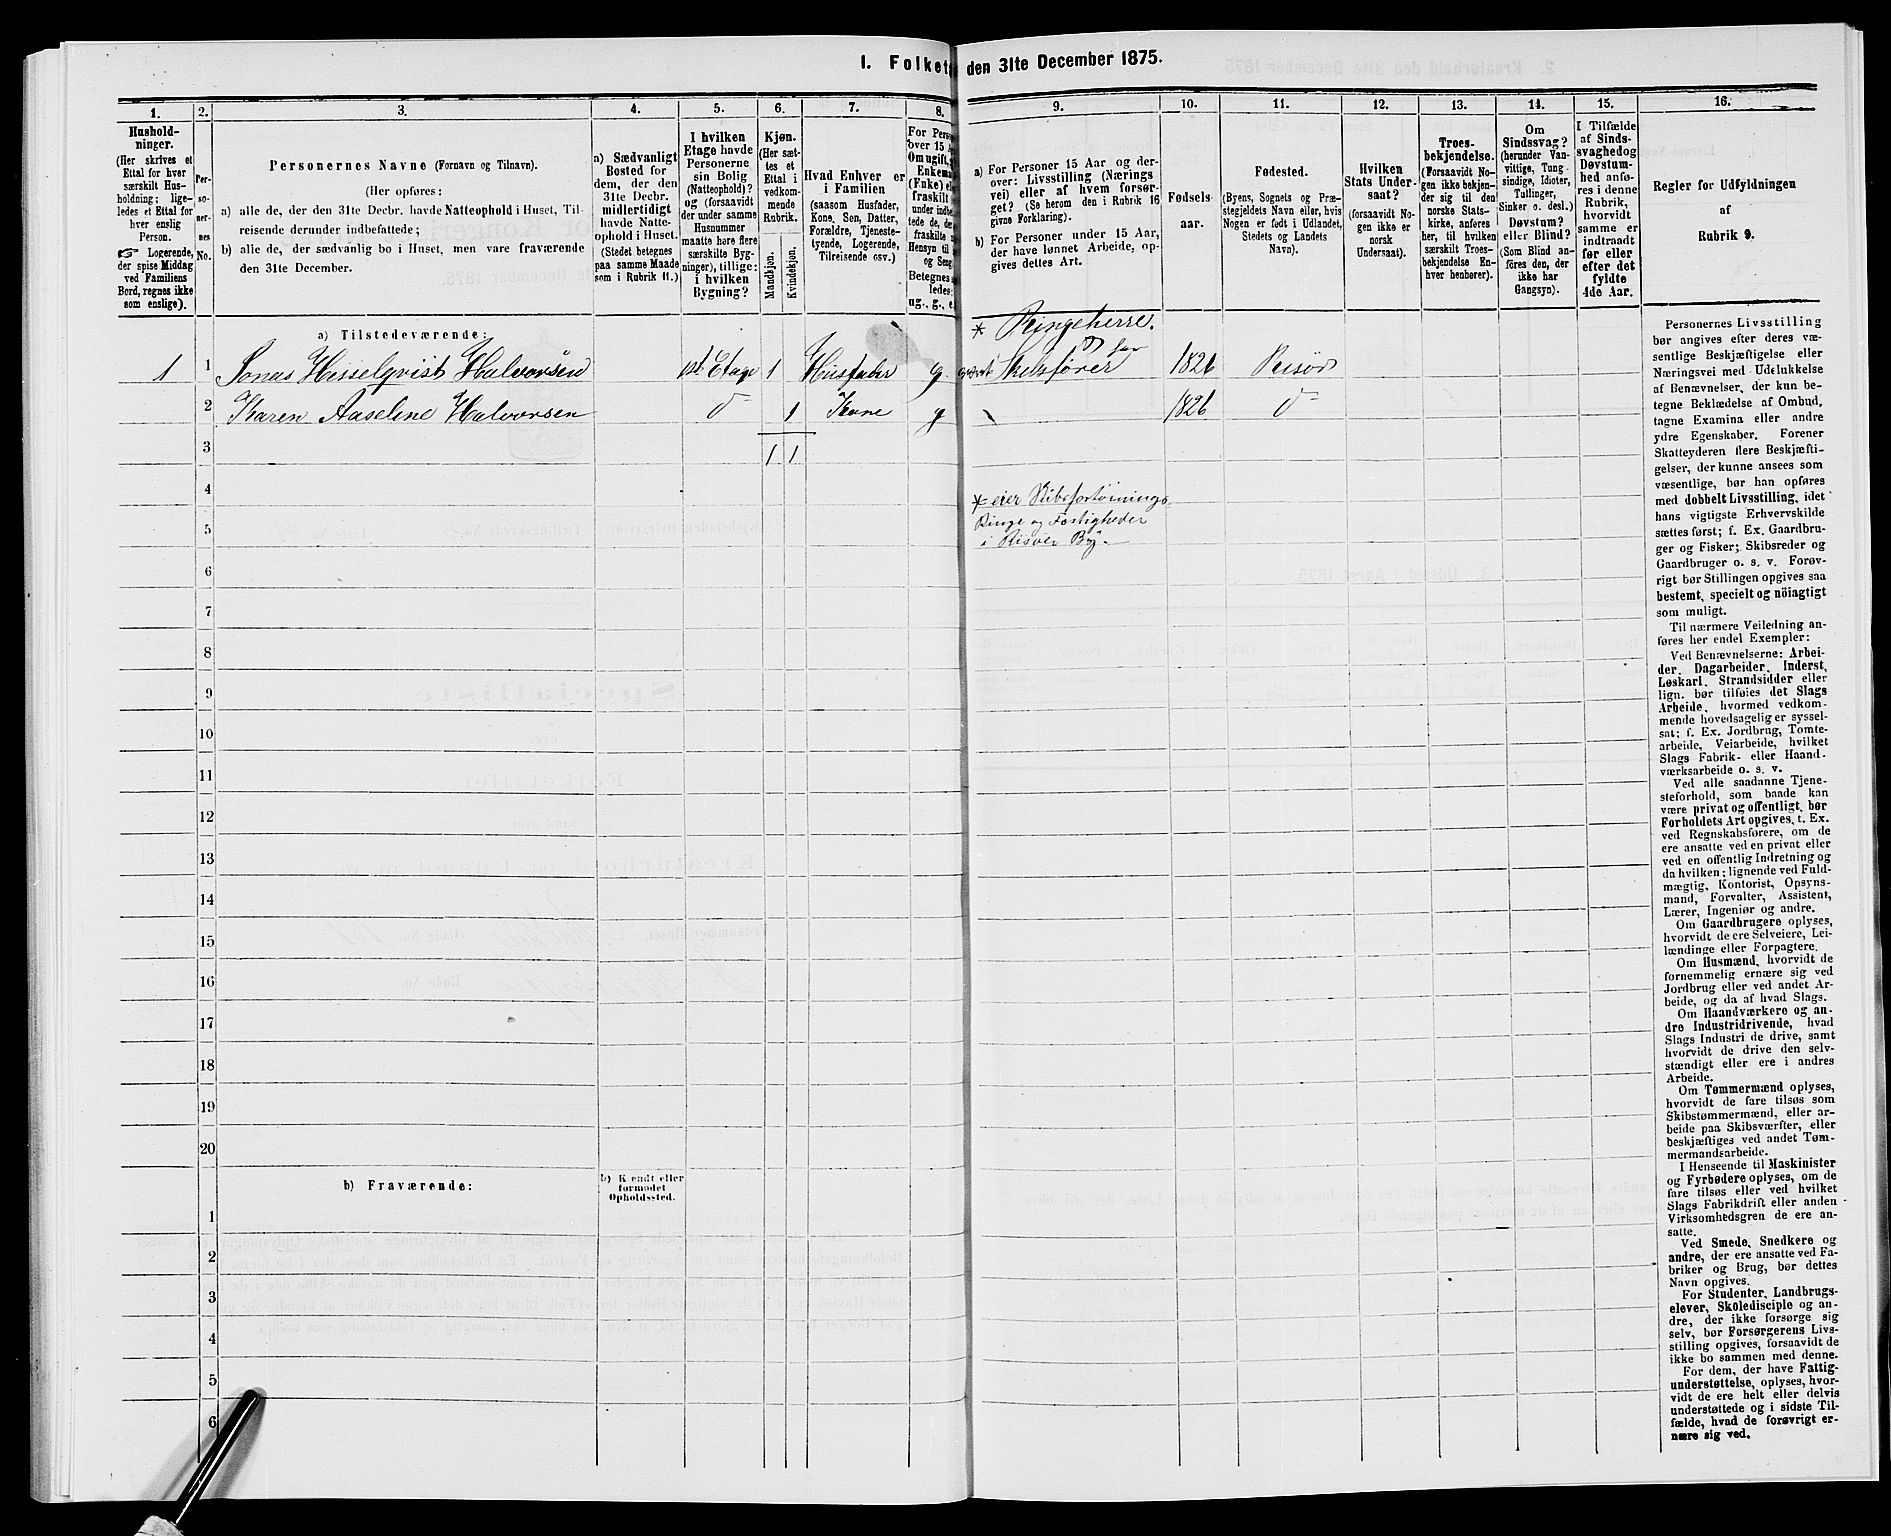 I. Folket den 31te December 1875.
1.
Hushold-
ninger.
(Her skrives et
Ettal for hver
særskilt Hus-
holdning; lige-
ledes et Ettal for
hver enslig
Person.
☞ Logerende,
der spise Middag
ved Familiens
Bord, regnes ikke
som enslige).
2.
Per-
so-
ner-
nes
No.
3.
Personernes Navne (Fornavn og Tilnavn).
(Her opføres:
a) alle de, der den 31te Decbr. havde Natteophold i Huset, Til-
reisende derunder indbefattede;
b) alle de, der sædvanlig bo i Huset, men vare fraværende
den 31te December.
4.
a) Sædvanligt
Bosted for
dem, der den
31te Decbr.
midlertidigt
havde Natte-
ophold i Huset.
(Stedet betegnes
paa samme Maade
som i Rubrik 11.)
5.
I hvilken
Etage havde
Personerne
sin Bolig
(Natteophold)?
og (forsaavidt
der under samme
Husnummer
maatte høre flere
særskilte Byg-
ninger), tillige:
i hvilken
Bygning?
6.
Kjøn.
(Her sæt-
tes et
Ettal i
vedkom-
mende
Rubrik.
Mandkjøn.
Kvindekjøn.
7.
Hvad Enhver er
i Familien
(saasom Husfader,
Kone, Søn, Datter,
Forældre, Tjeneste-
tyende, Logerende,
Tilreisende osv.)
8.
For Pers
over 15 A
Om ugift,
Enkema
(Enke) el
fraskilt
under indbe
tede de, de
fraskilte
Hensyn til
og Seng
Betegnes
ledes:
ug., g., e.
9.
a) For Personer 15 Aar og der-
over: Livsstilling (Nærings
vei) eller af hvem forsør-
get? (Se herom den i Rubrik 16
givne Forklaring).
b) For Personer under 15 Aar,
der have lønnet Arbeide, op-
gives dettes Art.
10.
Fødsels-
aar.
11.
Fødested.
(Byens, Sognets og Præ-
stegjeldets Navn eller, hvis
Nogen er født i Udlandet,
Stedets og Landets
Navn).
12.
Hvilken
Stats Under-
saat?
(forsaavidt No-
gen ikke er
norsk
Undersaat).
13.
Troes-
bekjendelse.
(Forsaavidt No-
gen ikke bekjen-
der sig til den
norske Stats-
kirke, anføres
her, til hvilken
særskilt Troes-
bekjendelse En-
hver henhører).
14.
Om
Sindssvag?
(herunder Van-
vittige, Tung
sindige, Idioter,
Tullinger,
Sinker o. desl.)
Døvstum?
eller Blind?
(Som Blind an-
føres den, der
ikke har
Gangsyn).
15.
I Tilfælde
af Sinds-
svaghed og
Døvstum-
hed anfø-
res i denne
Rubrik,
hvorvidt
samme er
indtraadt
før eller
efter det
fyldte
4de Aar.
16.
Regler for Udfyldningen
af
Rubrik 9.
a) Tilstedeværende:
* Ringeherre.
1 1 Jonas Hesselqvist Halvorsen 1st Etage 1 Husfader g Skibsfører 1826 Risør
2 Karen Aaseline Halvorsen d 1 Kone g 1826 d
3 1 1
4 * eier Skibsfortöinings
5 Ringe og Fastigheder
i Risoer By.
6
7
8
9
10
11
12
13
14
15
16
17
18
19
20
b) Fraværende:
b) Kjendt eller
formodet
Opholdssted.
1
2
3
4
5
6
Personernes Livsstilling
bør angives efter deres væ-
sentlige Beskjæftigelse eller
Næringsvei med Udelukkelse
af Benævnelser, der kun be-
tegne Beklædelse af Ombud,
tagne Examina eller andre
ydre Egenskaber. Forener
Skatteyderen flere Beskjæfti-
gelser, der kunne ansees som
væsentlige, bør han opføres
med dobbelt Livsstilling, idet
hans vigtigste Erhvervskilde
sættes først; f. Ex. Gaardbru-
ger og Fisker; Skibsreder og
Gaardbruger o. s. v. Forøv-
rigt bør Stillingen opgives saa
bestemt, specielt og nöiagtigt
som muligt.
Til nærmere Veiledning an-
føres her endel Exempler:
Ved Benævnelserne: Arbei-
der, Dagarbeider, Inderst,
Løskarl, Strandsidder eller
lign. bør tilføies det Slags
Arbeide, hvormed vedkom-
mende hovedsagelig er syssel-
sat; f. Ex. Jordbrug, Tomte-
arbeide, Veiarbeide, hvilket
Slags Fabrik- eller Haand-
værksarbeide o. s. v.
Ved alle saadanne Tjene-
steforhold, som baade kan
være privat og offentligt, bør
Forholdets Art opgives, t. Ex.
ved Regnskabsførere, om de
ere ansatte ved en privat eller
ved en offentlig Indretning og
da hvilken; lignende ved Fuld-
mægtig, Kontorist, Opsyns-
mand, Forvalter, Assistent,
Lærer, Ingeniør og andre.
Om Gaardbrugere oplyses,
hvorvidt de ere Selveiere, Lei-
lændinge eller Forpagtere.
Om Husmænd, hvorvidt de
fornemmelig ernære sig ved
Jordbrug eller ved andet Ar-
beide, og da af hvad Slags.
Om Haandværkere og an-
dre Industridrivende, hvad
Slags Industri de drive, samt
hvorvidt de drive den selv-
stændigt eller ere i andres
Arbeide.
Om Tømmermænd oplyses,
hvorvidt de fare tilsøs som
Skibstømmermænd, eller ar-
beide paa Skibsværfter, eller
beskjæftiges ved andet Tøm-
mermandsarbeide.
I Henseende til Maskinister
og Fyrbødere oplyses, om de
fare tilsøs eller ved hvilket
Slags Fabrikdrift eller anden
Virksomhedsgren de ere an-
satte.
Ved Smede, Snedkere og
andre, der ere ansatte ved Fa-
briker og Brug, bør dettes
Navn opgives.
For Studenter, Landbrugs-
elever, Skoledisciple og an-
dre, der ikke forsørge sig
selv, bør Forsørgerens Livs-
stilling opgives, forsaavidt de
ikke bo sammen med denne.
For dem, der have Fattig-
understøttelse, oplyses, hvor-
vidt de ere helt eller delvis
understøttede og i sidste Til-
fælde, hvad de forøvrigt er-
nære sig ved.